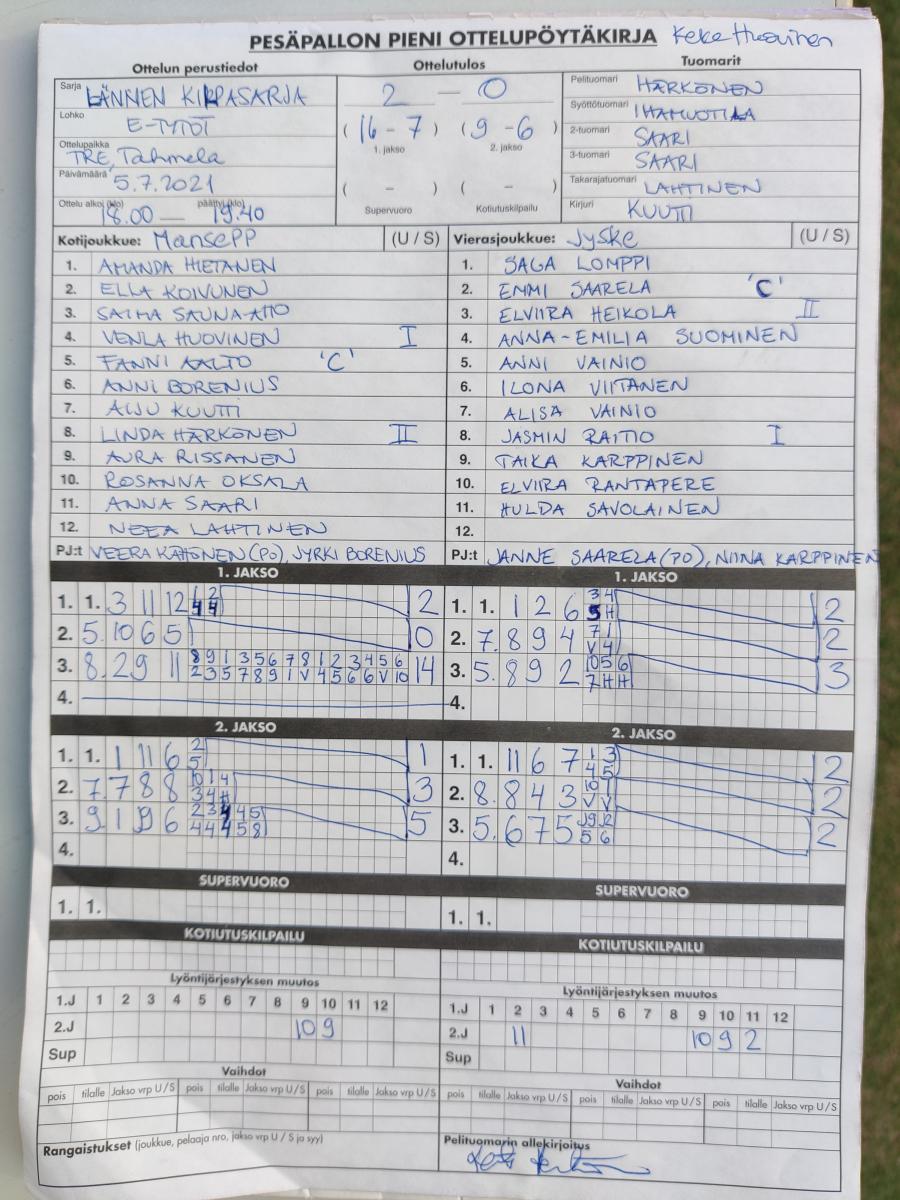 PESÄPALLON PIENI OTTELUPÖYTÄKIRJA Keke Huovinen
Ottelun perustiedot Ottelutulos Tuomarit
Sarja LÄNNEN KIRPPASARJA 2 — 0 Pelituomari HÄRKÖNEN
Lohko E-TYTÖT (16 - 7) (9 - 6) Syöttötuomari IHAMUOTILA
1. jakso 2. jakso 2-tuomari SAARI
Ottelupaikka TRE, Tahmela 3-tuomari SAARI
Päivämäärä 5.7.2021 ( - ) ( - ) Takarajatuomari LAHTINEN
Ottelu alkoi (klo) 18.00 — päättyi (klo) 19.40 Supervuoro Kotiutuskilpailu Kirjuri KUUTTI
Kotijoukkue: MansePP (U / S) Vierasjoukkue: Jyske (U / S)
1. AMANDA HIETANEN 1. SAGA LOMPPI
2. ELLA KOIVUNEN 2. EMMI SAARELA 'C'
3. SAIMA SAUNA-AHO 3. ELVIIRA HEIKOLA II
4. VENLA HUOVINEN I 4. ANNA-EMILIA SUOMINEN
5. FANNI AALTO 'C' 5. ANNI VAINIO
6. ANNI BORENIUS 6. ILONA VIITANEN
7. AIJU KUUTTI 7. ALISA VAINIO
8. LINDA HÄRKÖNEN II 8. JASMIN RAITIO I
9. AURA RISSANEN 9. TAIKA KARPPINEN
10. ROSANNA OKSALA 10. ELVIIRA RANTAPERE
11. ANNA SAARI 11. HULDA SAVOLAINEN
12. NEEA LAHTINEN 12.
PJ:t VEERA KÄHÖNEN (PO), JYRKI BORENIUS PJ:t JANNE SAARELA (PO), NIINA KARPPINEN
1. JAKSO 1. JAKSO
1. 1. 3 11 12 1 2 2 1. 1. 1 2 6 3 4 2
4 4 5 H
2. 5. 10 6 5 0 2. 7. 8 9 4 7 1 2
V 4
3. 8. 2 9 11 8 9 1 3 5 6 7 8 1 2 3 4 5 6 14 3. 5. 8 9 2 10 5 6 3
2 3 5 7 8 9 1 V 4 5 6 6 V 10 7 H H
4. 4.
2. JAKSO 2. JAKSO
1. 1. 1 11 6 2 1 1. 1. 11 6 7 1 3 2
5 4 5
2. 7. 7 8 8 10 1 4 3 2. 8. 8 4 3 10 1 2
3 4 H V V
3. 9. 1 9 6 2 3 4 4 5 5 3. 5. 6 7 5 J9 J2 2
4 4 4 5 8 5 6
4. 4.
SUPERVUORO SUPERVUORO
1. 1. 1. 1.
KOTIUTUSKILPAILU KOTIUTUSKILPAILU
Lyöntijärjestyksen muutos Lyöntijärjestyksen muutos
1.J 1 2 3 4 5 6 7 8 9 10 11 12 1.J 1 2 3 4 5 6 7 8 9 10 11 12
2.J 10 9 2.J 11 10 9 2
Sup Sup
Vaihdot Vaihdot
pois tilalle Jakso vrp U / S pois tilalle Jakso vrp U / S pois tilalle Jakso vrp U / S pois tilalle Jakso vrp U / S pois tilalle Jakso vrp U / S pois tilalle Jakso vrp U / S
Rangaistukset (joukkue, pelaaja nro, jakso vrp U / S ja syy) Pelituomarin allekirjoitus